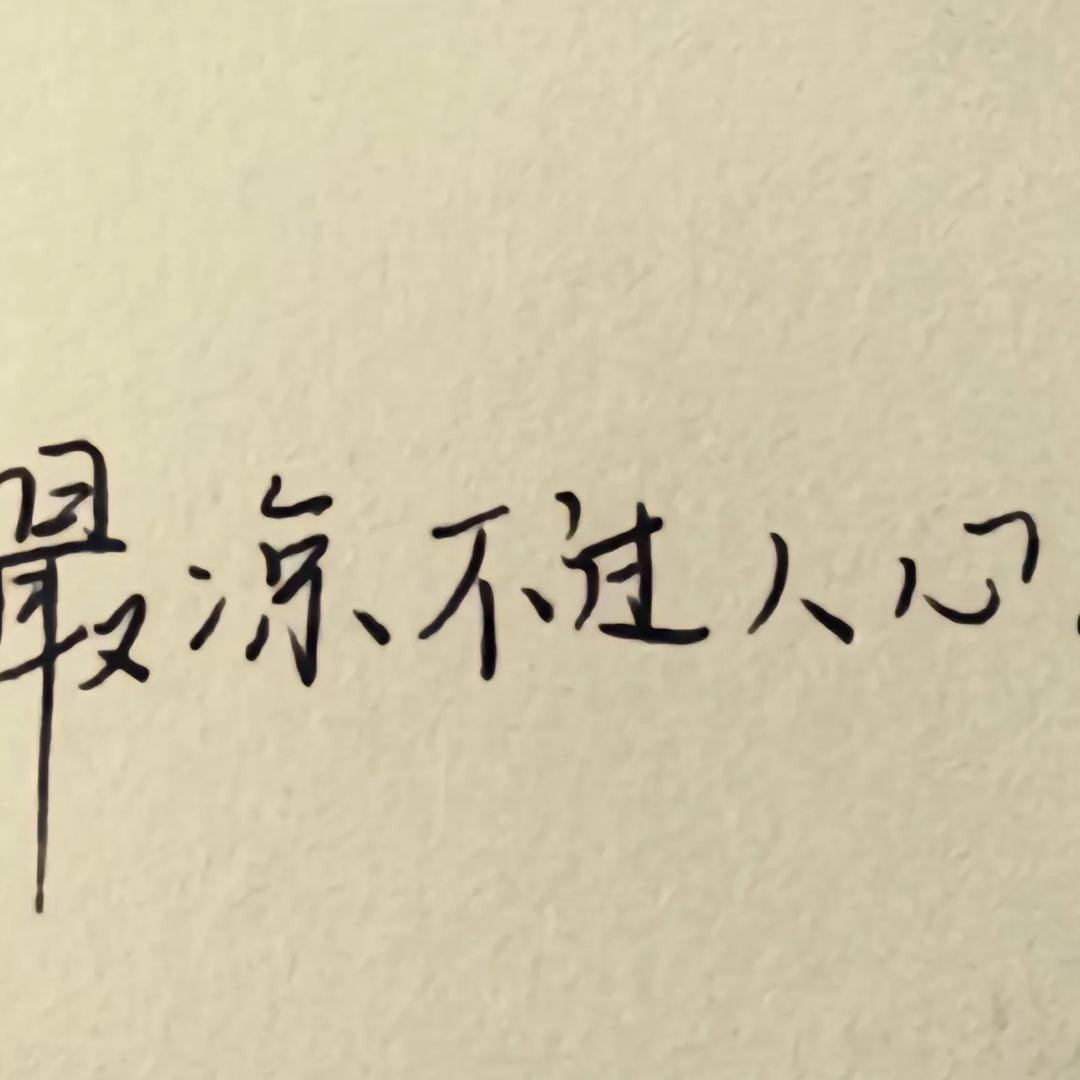 最凉不过人心